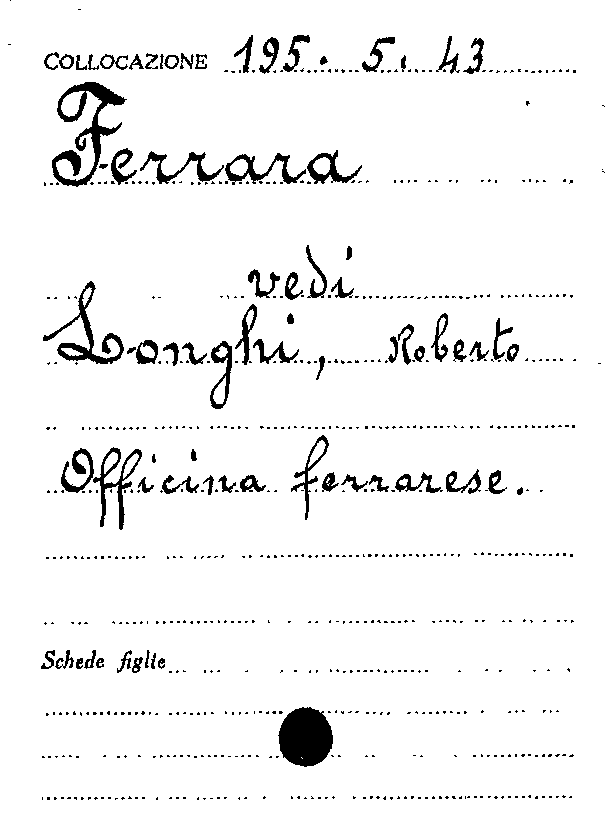 COLLOCAZIONE 195. 5. 43
Ferrara
vedi
Longhi, Roberto
Officina ferrarese.
Schede figlie